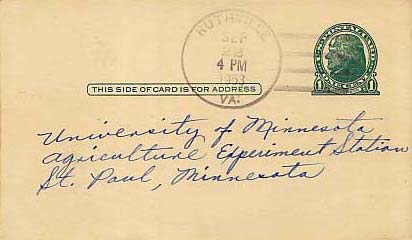 RUTHVILLE
SEP
22
4 PM
1953
VA.
THIS SIDE OF CARD IS FOR ADDRESS
1 1
University of Minnesota
Agriculture Experiment Station
St. Paul, Minnesota